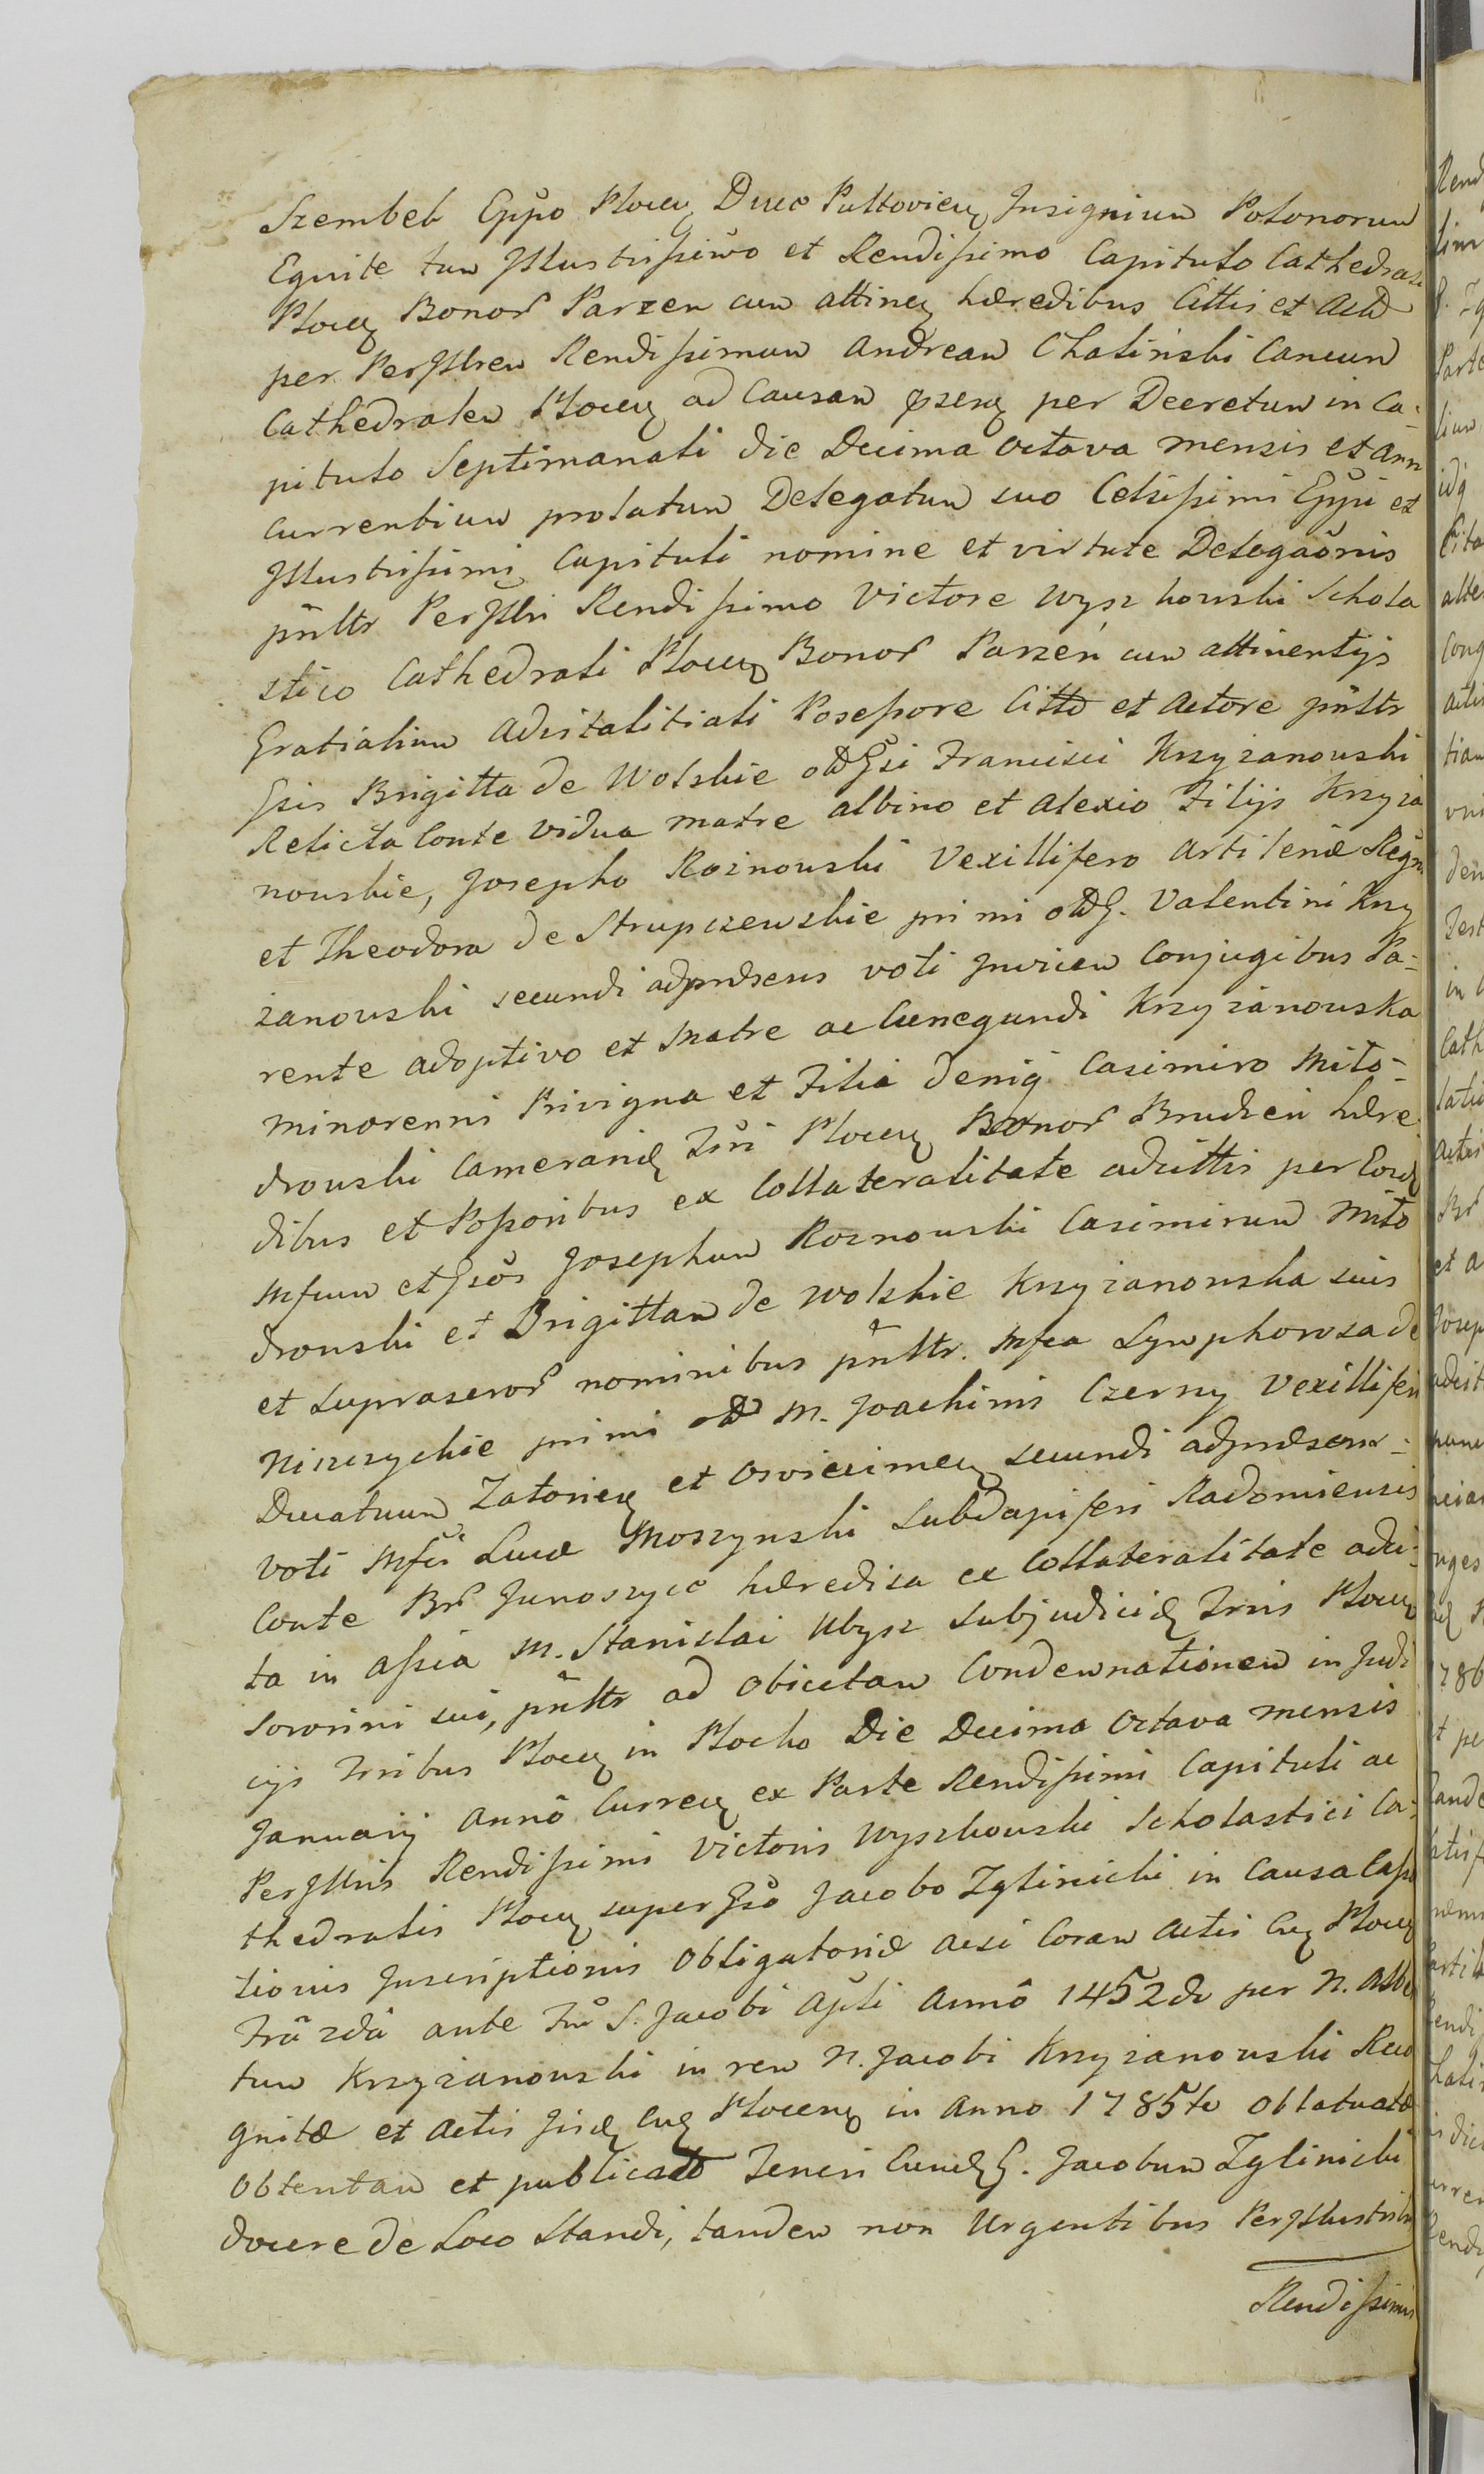 Szembek Eppo Plocen Duce Pultovien Insignium Polonorum
Equite tum Illustrissimo et Rendissimo Capitulo Cathedrali
Plocen Bonor Parzen cum attinen hæredibus Cittis et Actd
per PerIllrem Rendissimum Andream Chalinski Cancum
Cathedralem Plocen ad Causam præsen per Decretum in Ca-
pitulo Septimanali die Decima Octava mensis et Anni
currentium prolatum Delegatum suo Celsissimi Eppi et
Illustrissimi Capituli nomine et virtute Delegaonis
pnltr PerIllri Rendissimo Victore Wyszkowski Schola
stico Cathedrali Plocen Bonor Parzen cum attinentijs
Gratialium Advitalitiali Possessore Citto et Actore pnltr
Gsis Brigitta de Wolskie olt Gsi Francisci Krzyzanowski
Relicta Conte Vidua matre Albino et Alexio Filijs Krzyza
nowskie, Josepho Roznowski Vexillifero Artileriæ Regni
et Theodora de Strupczewskie primi olt G. Valentini Krzy
zanowski secundi adpræsens voti Invicem Conjugibus Pa-
rente adoptivo et Matre ac Cunegundi Krzyzanowska
minorenni Privigna et Filia deniq Casimiro Mito-
drowski Camerarid Tri Plocen Bonor Brudzen hære
dibus et Possoribus ex Collateralitate adcittis per Eosd
Mfcum et Gsos Josephum Roznowski Casimirum Mito
drowski et Brigittam de Wolskie Krzyzanowska suis
et suprascror nominibus pnltr. Mfca Symphorosa de
Niszczyckie primi olt M. Joachimi Czerny Vexilliferi
Ducatuum Zatorien et Osviecimen secundi adpræsens
voti Mfci Lucæ Moszynski Subdapiferi Radomiensis
Conte Br Junoszyce hæredisa ex Collateralitate adci-
ta in assia M. Stanislai Ubysz Subjudicid Tris Plocen
sororini sui, pnltr ad obicetam Condemnationem in Judi
cijs Tribus Plocen in Plocko Die Decima Octava mensis
Januarij anno Curren ex Parte Rendissimi Capituli ac
PerIllris Rendissimi Victoris Wyszkowski Scholastici Ca-
thedralis Plocen super Gso Jacobo Zglinicki in Causa Cassa
tionis Inscriptionis Obligatoriæ acsi Coram Actis Cen Plocen
Fra 2da ante Fm S. Jacobi Apli Anno 1452do per N. Alber
tum Krzyzanowski in rem N. Jacobi Krzyzanowski Reco
gnitæ et Actis Jisd Cen Plocens in Anno 1785to Oblatuatæ
Obtentam et publicato Teneri Eund G. Jacobum Zglinicki
docere de Loco Standi, tandem non Urgentibus PerIllustribus
Rendissimis